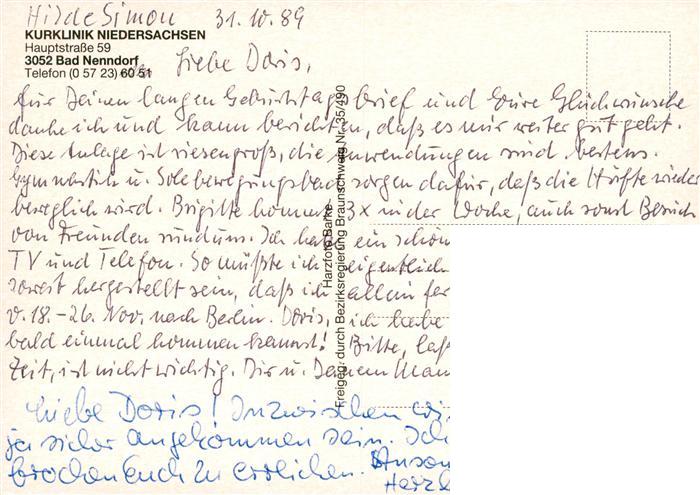 Hilde Simon 31.10.89
KURKLINIK NIEDERSACHSEN
Hauptstraße 59
3052 Bad Nenndorf
Telefon (0 57 23) 60 51
Liebe Doris,
für Deinen langen Geburtstagsbrief und Eure Glückwünsche
danke ich und kann berichten, daß es mir weiter gut geht.
Diese Anlage ist riesengroß, die Anwendungen sind bestens.
Gymnastik u. Solebewegungsbad sorgen dafür, daß die Hüfte wieder
beweglich wird. Brigitte kommt 3x in der Woche, auch sonst Besuch
von Freunden rundum. Ich habe ein schön
TV und Telefon. So müßte ich eigentlich
soweit hergestellt sein, daß ich allein
v. 18.-26. Nov. nach Berlin. Doris, ich habe
bald einmal kommen kannst! Bitte, laß
Zeit, ist nicht wichtig. Dir u. Deinem Mann
Liebe Doris! Inzwischen
ja sicher angekommen sein. Ich
Euch zu
Harzfoto Barke
Freigeg. durch Bezirksregierung Braunschweig Nr. 35/490